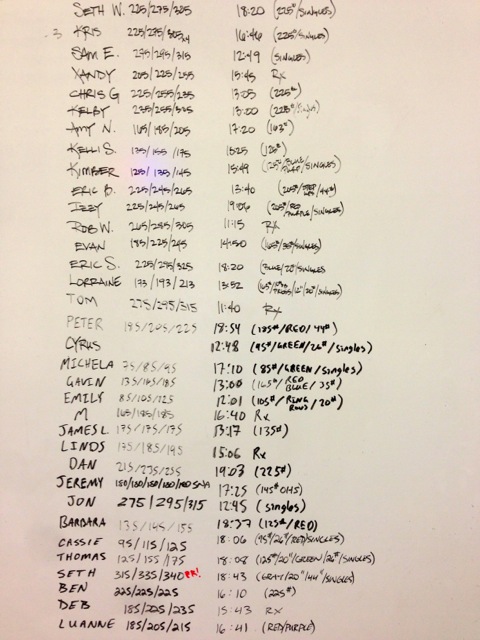 SETH W. 225/275/325 18:20 (225#/SINGLES)
KRIS 225/275/305 16:46 (225#/SINGLES)
SAM E. 275/295/315 12:49 (SINGLES)
XANDY 205/225/255 15:45 Rx
CHRIS G 225/255/235 13:05 (225#)
KELBY 235/255/325 13:00
AMY N. 165/185/205 17:20 (163#)
KELLI S. 135/155/175 15:25 (125#)
KIMBER 125/135/145 15:49
ERIC B. 225/245/265 13:40
IZZY 225/245/265 19:06
ROB W. 265/285/305 11:15 Rx
EVAN 185/225/245 14:50
ERIC S. 225/295/325 18:20 (BLUE/20"/SINGLES
LORRAINE 173/193/213 13:52
TOM 275/295/315 11:40 Rx
PETER 185/205/225 18:54 (185#/RED/44#)
CYRUS 12:48 (95#/GREEN/26#/singles)
MICHELA 75/85/95 17:10 (85#/GREEN/singles)
GAVIN 135/165/185 13:00 (165#/RED BLUE/35#)
EMILY 85/105/125 12:01 (105#/RING ROWS/20#)
M 165/185/185 16:40 Rx
JAMES L. 175/175/175 13:17 (135#)
LINDS 175/185/195 15:06 Rx
DAN 215/235/255 19:03 (225#)
JEREMY 17:25 (145# OHS)
JON 275/295/315 12:45 (singles)
BARBARA 135/145/155 18:37 (125#/RED)
CASSIE 95/115/125 18:06 (95#/26#/RED/SINGLES)
THOMAS 125/155/175 18:08 (125#/20"/GREEN/26#/SINGLES)
SETH 315/335/340 PR! 18:43 (GRAY/20"/44#/SINGLES)
BEN 225/225/225 16:10 (225#)
DEB 185/225/235 15:43 RX
LUANNE 185/205/215 16:41 (RED/PURPLE)